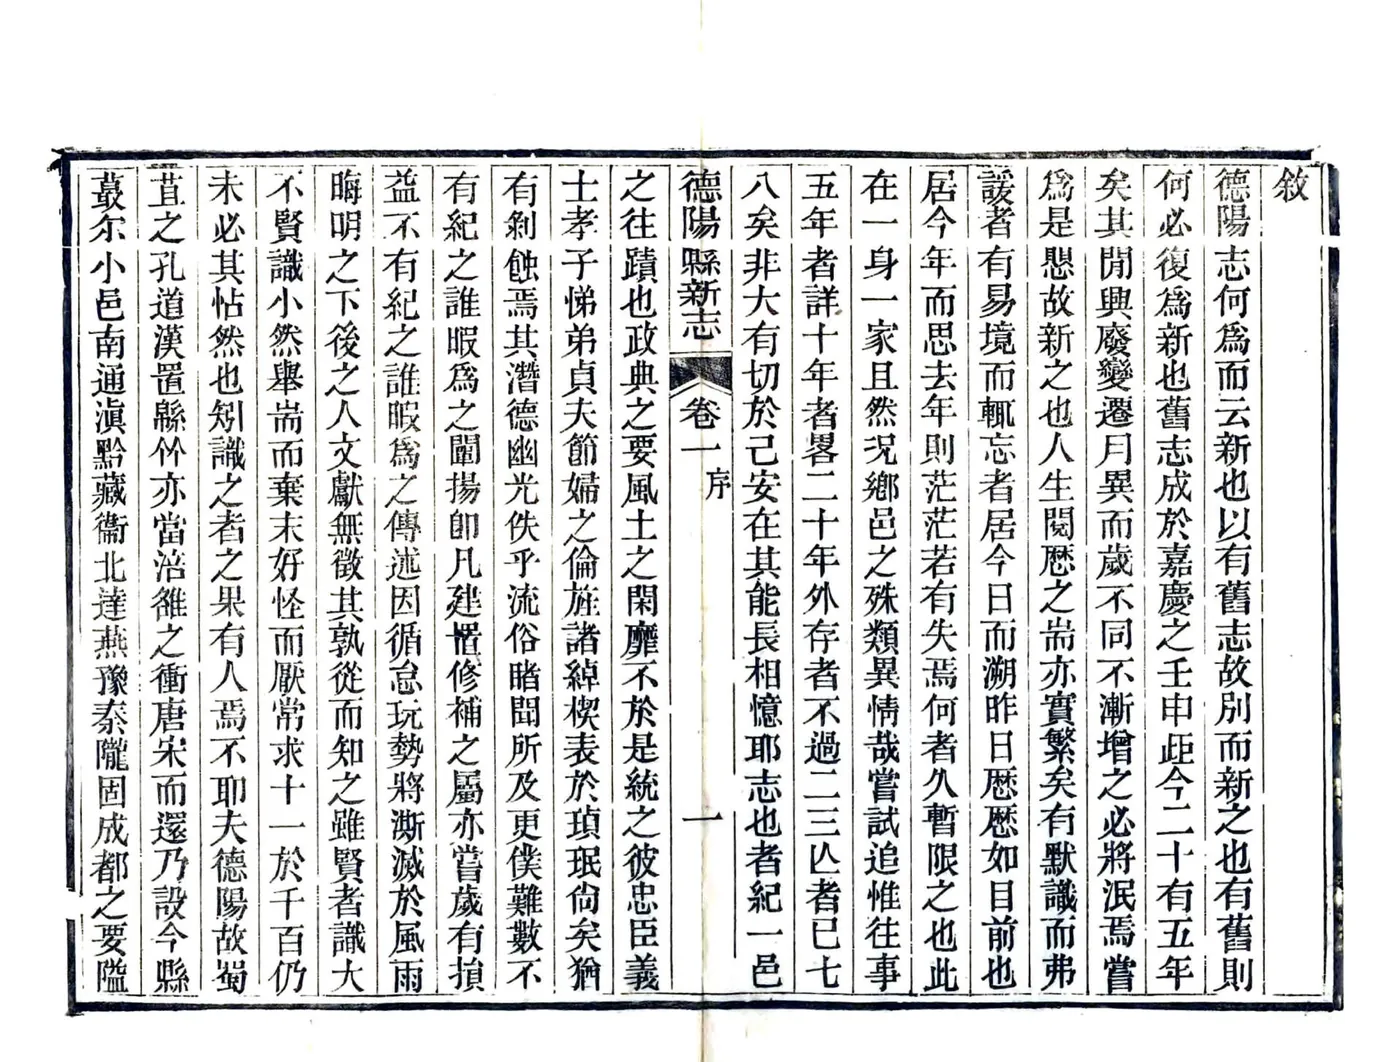 敘
德陽志何爲而云新也以有舊志故別而新之也有舊則
何必復爲新也舊志成於嘉慶之壬申距今二十有五年
矣其閒興廢變遷月異而歲不同不漸增之必將泯焉嘗
爲是懇故新之也人生閱歷之耑亦實繁矣有默識而弗
諼者有易境而輒忘者居今日而溯昨日歷歷如目前也
居今年而思去年則茫茫若有失焉何者久暫限之也此
在一身一家且然况鄉邑之殊類異情哉嘗試追惟往事
五年者詳十年者畧二十年外存者不過二三亾者已七
八矣非大有切於己安在其能長相憶耶志也者紀一邑
德陽縣新志 卷一 序 一
之往蹟也政典之要風土之閑靡不於是統之彼忠臣義
士孝子悌弟貞夫節婦之倫旌諸綽楔表於瑱珉尙矣猶
有剝蝕焉其潛德幽光佚乎流俗睹聞所及更僕難數不
有紀之誰暇爲之闡揚卽凡建置修補之屬亦嘗歲有損
益不有紀之誰暇爲之傳述因循怠玩勢將澌滅於風雨
晦明之下後之人文獻無徵其孰從而知之雖賢者識大
不賢識小然舉耑而棄末好怪而厭常求十一於千百仍
未必其帖然也矧識之者之果有人焉不耶夫德陽故蜀
苴之孔道漢置縣竹亦當涪雒之衝唐宋而還乃設今縣
蕞尔小邑南通滇黔藏衞北達燕豫秦隴固成都之要隘